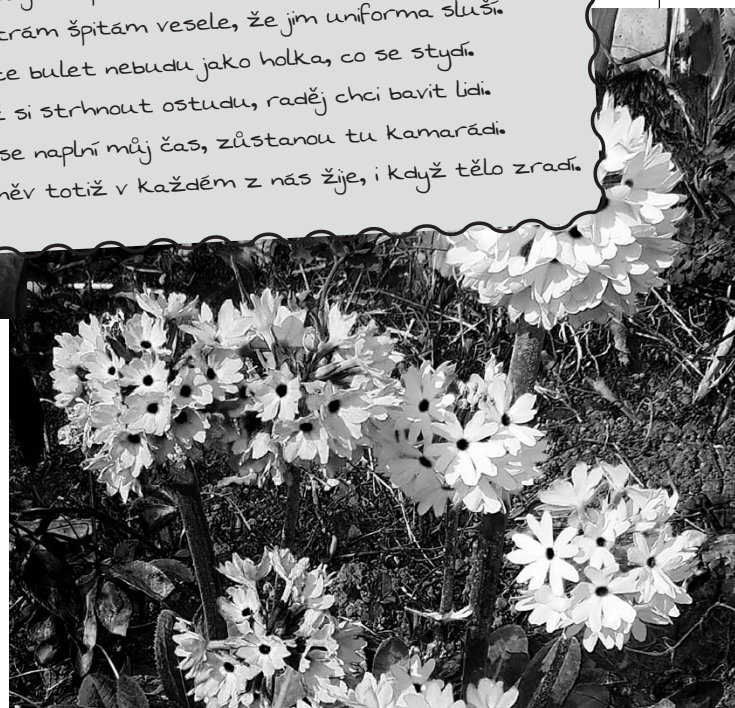 trám špitám vesele, že jim uniforma sluší.
te bulet nebudu jako holka, co se stydí.
ž si strhnout ostudu, raděj chci bavit lidi.
se naplní můj čas, zůstanou tu kamarádi.
něv totiž v každém z nás žije, i když tělo zradí.